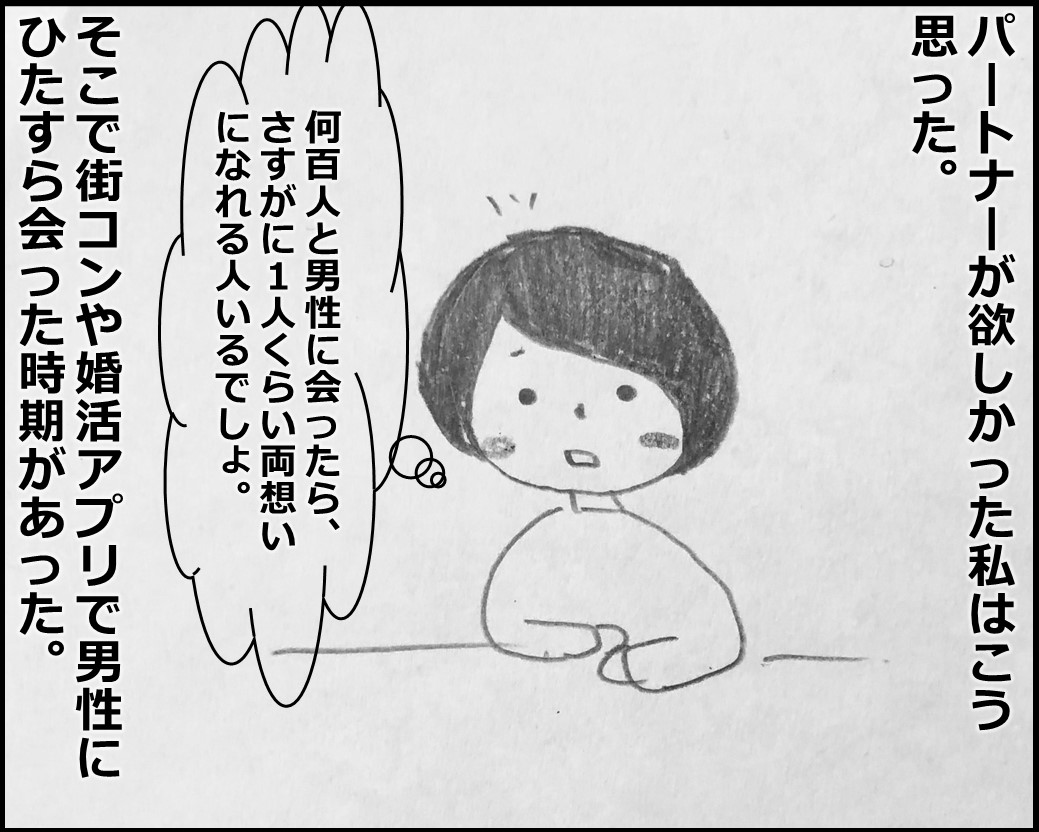 パートナーが欲しかった私はこう
思った。
何百人と男性に会ったら、
さすがに1人くらい両想い
になれる人いるでしょ。
そこで街コンや婚活アプリで男性に
ひたすら会った時期があった。